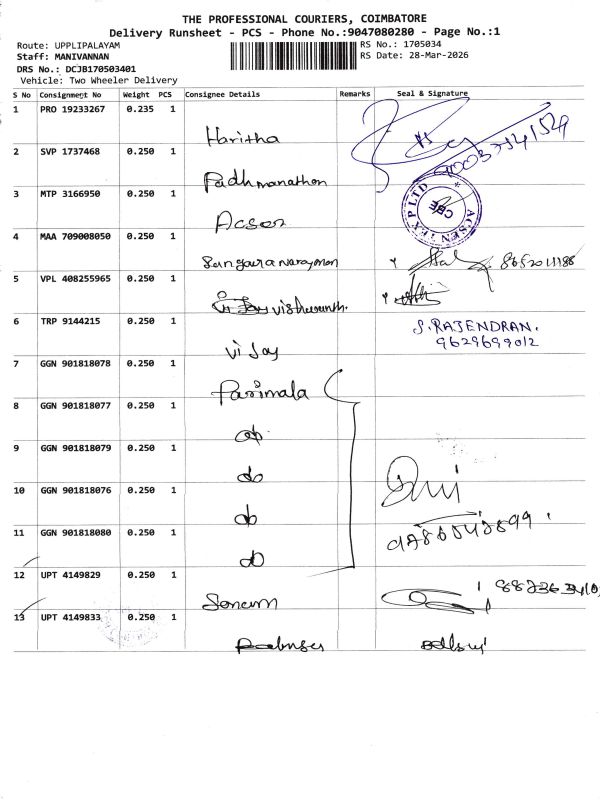 THE PROFESSIONAL COURIERS, COIMBATORE
Delivery Runsheet - PCS - Phone No.:9047080280 - Page No.:1
Route: UPPLIPALAYAM
RS No.: 1705034
Staff: MANIVANNAN
RS Date: 28-Mar-2026
DRS No.: DCJB170503401
Vehicle: Two Wheeler Delivery
S No Consignment No Weight PCS Consignee Details Remarks Seal & Signature
1 PRO 19233267 0.235 1 Haritha
2 SVP 1737468 0.250 1 Padhmanathan
3 MTP 3166950 0.250 1 Acsen
ACSEN TEX P LTD
CBE
4 MAA 709008050 0.250 1
5 VPL 408255965 0.250 1
6 TRP 9144215 0.250 1 Vijay
S. RAJENDRAN.
9629699012
7 GGN 901818078 0.250 1 Parimala
8 GGN 901818077 0.250 1 do
9 GGN 901818079 0.250 1 do
10 GGN 901818076 0.250 1 do
11 GGN 901818080 0.250 1 do
12 UPT 4149829 0.250 1
13 UPT 4149833 0.250 1